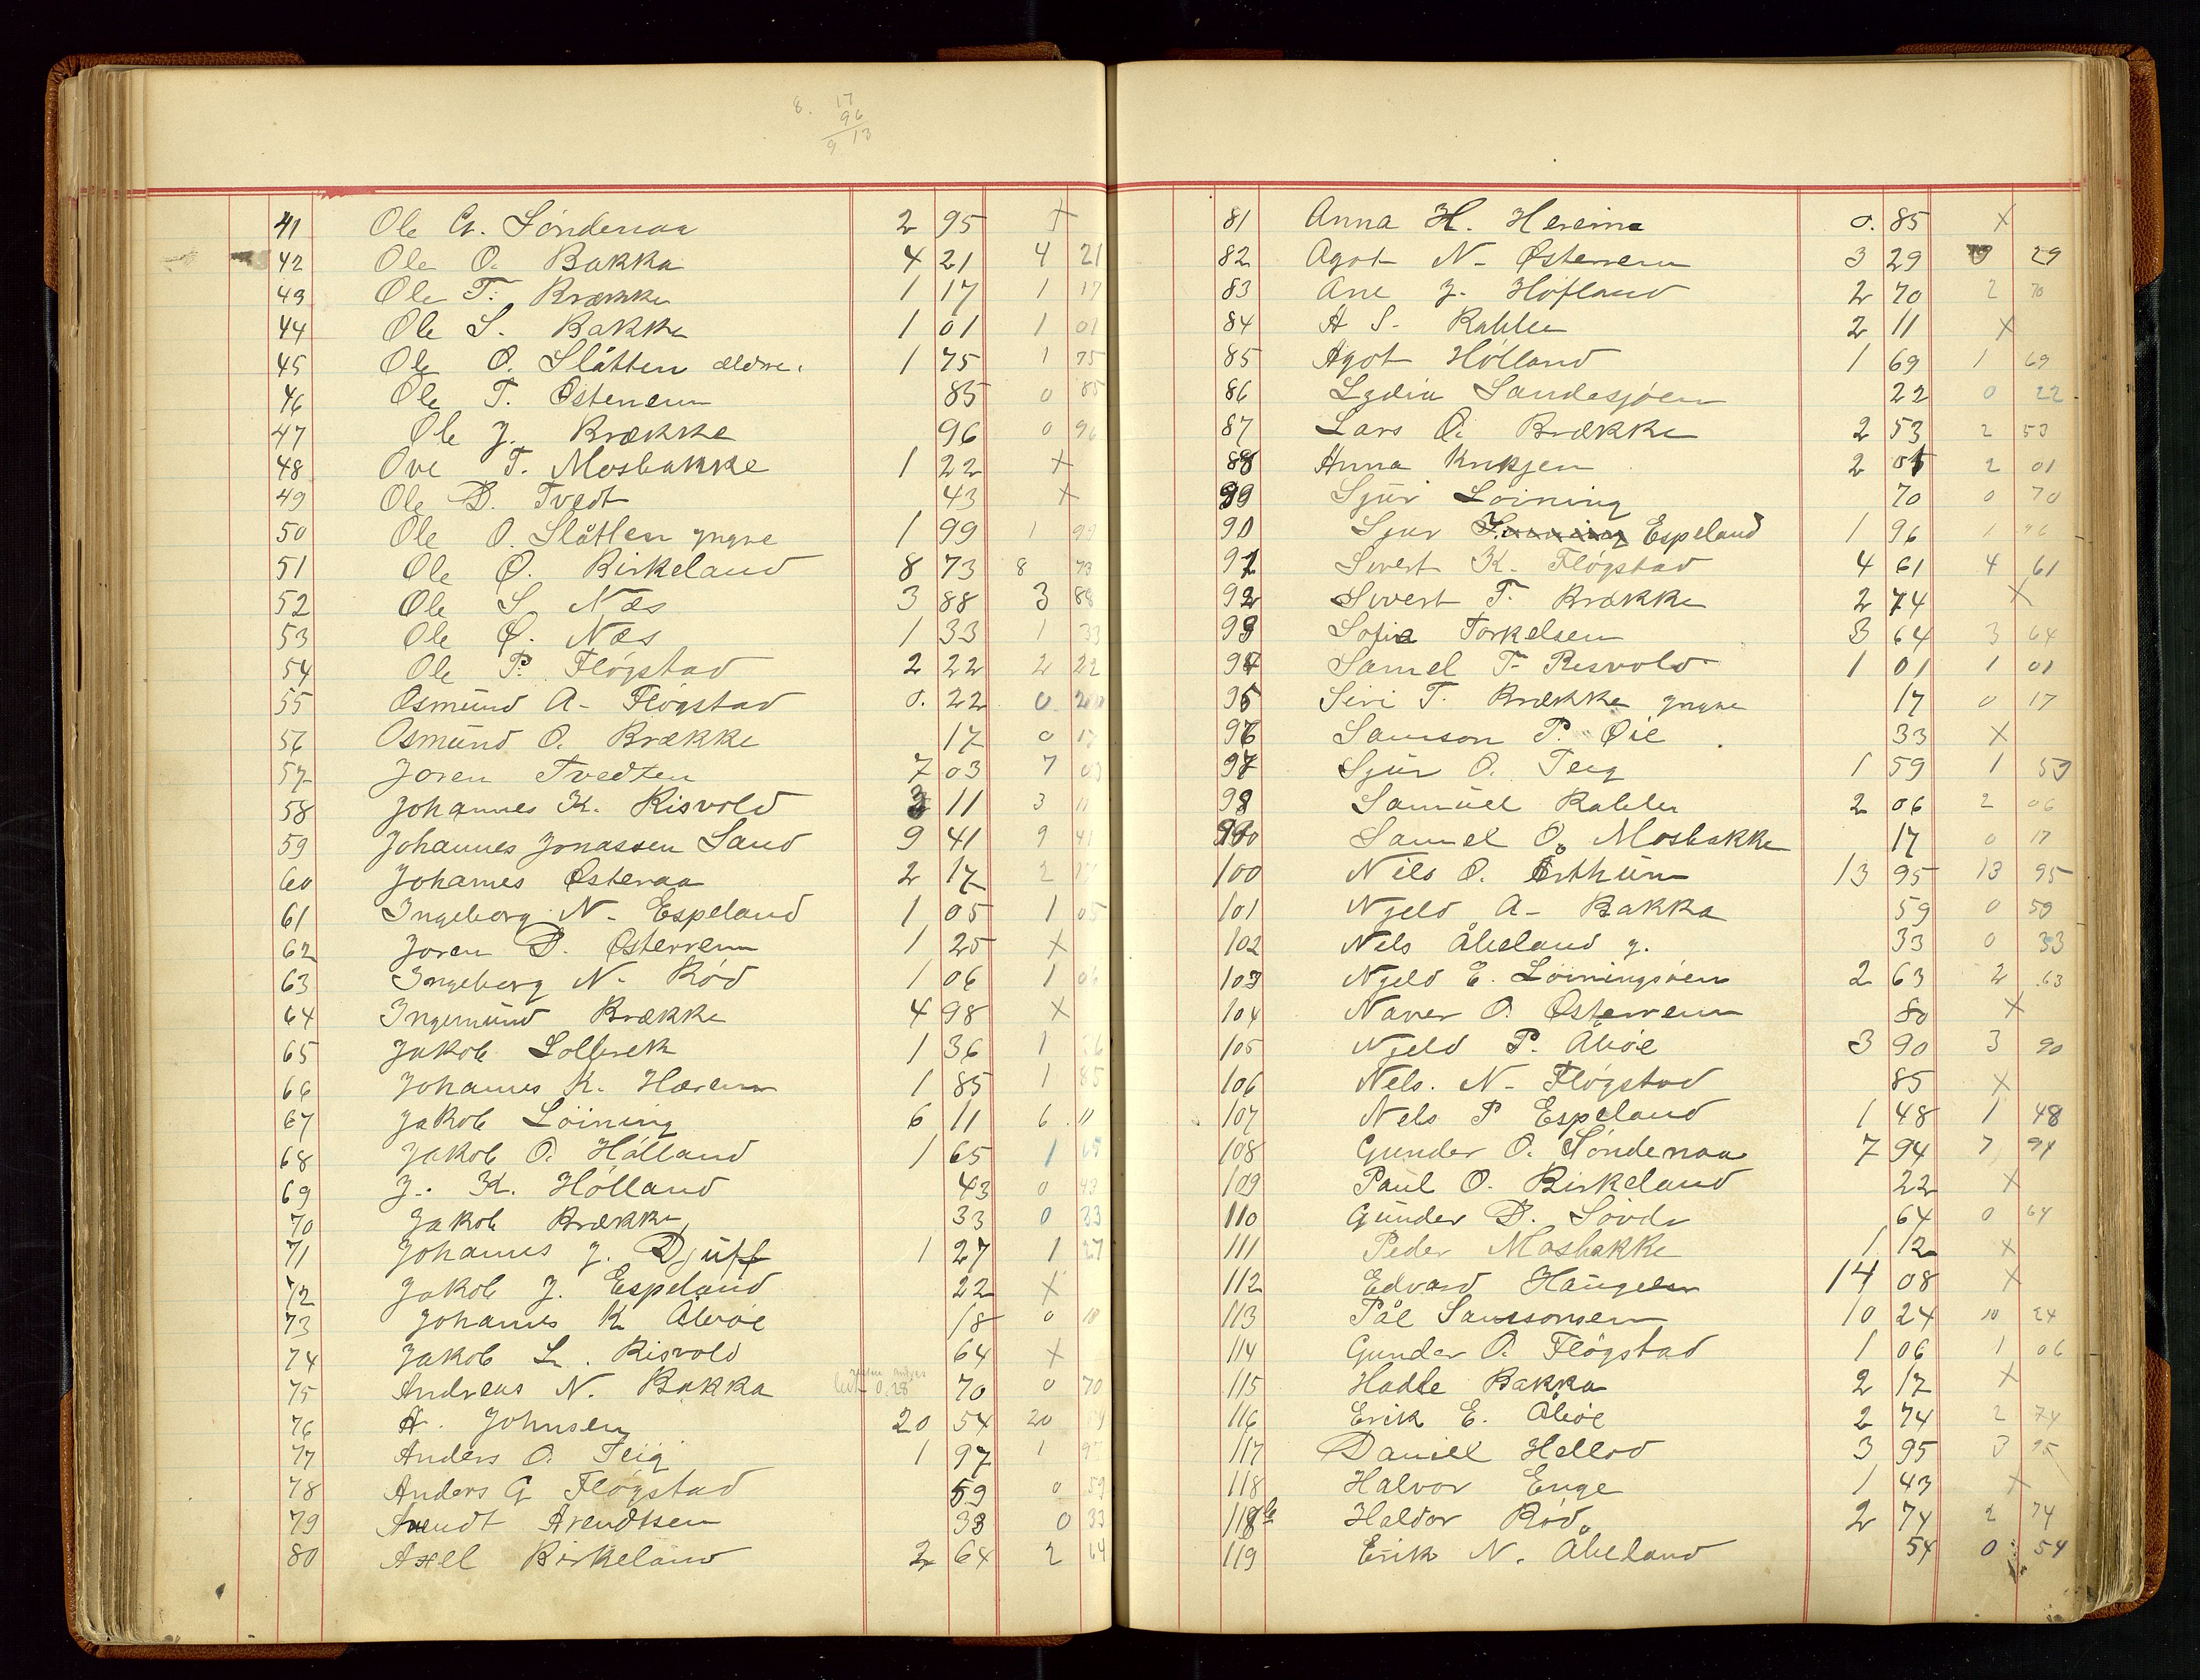 8. 17
96
9 13
41 Ole G. Söndenaa 2 95 X
42 Ole O. Bakka 4 21 4 21
43 Ole T. Brække 1 17 1 17
44 Ole S. Bakke 1 01 1 01
45 Ole O. Slåtten ældre. 1 75 1 75
46 Ole T. Østerrem 85 0 85
47 Ole J. Brække 96 0 96
48 Ove T. Mosbakke 1 22 X
49 Ole B. Tvedt 43 X
50 Ole O. Slåtten yngre 1 99 1 99
51 Ole O. Birkeland 8 73 8 73
52 Ole S. Næs 3 88 3 88
53 Ole O. Næs 1 33 1 33
54 Ole P. Flógstad 2 22 2 22
55 Osmund A- Flógstad 0. 22 0 20
56 Osmund O. Brække 17 0 17
57 Joren Tvedten 7 03 7 03
58 Johannes K. Risvold 3 11 3 11
59 Johannes Jonassen Sand 9 41 9 41
60 Johannes Østeraa 2 17 2
61 Ingeborg N- Espeland 1 05 1 05
62 Joren D. Østerrem 1 25 X
63 Ingeborg N- Ród 1 06 1 06
64 Ingemund Brække 4 98 X
65 Jakob Solbrek 1 36 1 36
66 Johannes K. Hærem 1 85 1 85
67 Jakob Löining 6 11 6 11
68 Jakob O. Hólland 1 65 1 65
69 J. K. Hólland 43 0 43
70 Jakob Brække 33 0 33
71 Johannes J. Djuff 1 27 1 27
72 Jakob J. Espeland 22 X
73 Johannes K Åbøe 18 0 18
74 Jakob L. Risvold 64 X
75 Andreas N. Bakka 0.28 70 0 70
76 A. Johnsen 20 54 20
77 Anders O. Teig 1 97 1 97
78 Anders G Flógstad 59 0 59
79 Arendt Arendtsen 33 0 33
80 Axel Birkeland 2 64 2 64
81 Anna H. Hereim 0. 85 X
82 Agot N- Østerrem 3 29 3 29
83 Ane J. Hófland 2 70 2 70
84 A S- Rabbe 2 11 X
85 Agot Hólland 1 69 1 69
86 Lydia Sandesjóen 22 0 22
87 Lars O. Brække 2 53 2 53
88 Anna 2 01 2 01
89 Sjur Löining 70 0 70
90 Sjur Espeland 1 96 1 96
91 Sivert K. Flógstad 4 61 4 61
92 Sivert T. Brække 2 74 X
93 Sofie Torkelsen 3 64 3 64
94 Samel T- Risvold 1 01 1 01
95 Siri T. Brække yngre 17 0 17
96 Samson P. Øie 33 X
97 Sjur O. Teig 1 59 1 59
98 Samuel Rabbe 2 06 2 06
Samuel O. Mosbakke 17 0 17
100 Nils O. Østhün 13 95 13 95
101 Njeld A- Bakka 59 0 59
102 Nels Åbeland y. 33 0 33
103 Njeld E. Löiningsóen 2 63 2 63
104 Naver O. Østerrem 80 X
105 Njeld P. Åbøe 3 90 3 90
106 Nels. N- Flógstad 85 X
107 Nels P Espeland 1 48 1 48
108 Gunder O. Söndenaa 7 94 7 94
109 Paul O. Birkeland 22 X
110 Gunder D. Lóvda 64 0 64
111 Peder Mosbakke 1 12 X
112 Edvard Haugen 14 08 X
113 Pål Samsonsen 10 24 10 24
114 Gunder O. Flógstad 1 06 1 06
115 Hadle Bakka 2 17 X
116 Erik E. Åbøe 2 74 2 74
117 Daniel Helleró 3 95 3 95
118 Halvor Enge 1 43 X
118b Haldor Ród. 2 74 2 74
119 Erik N. Åbeland 54 0 54